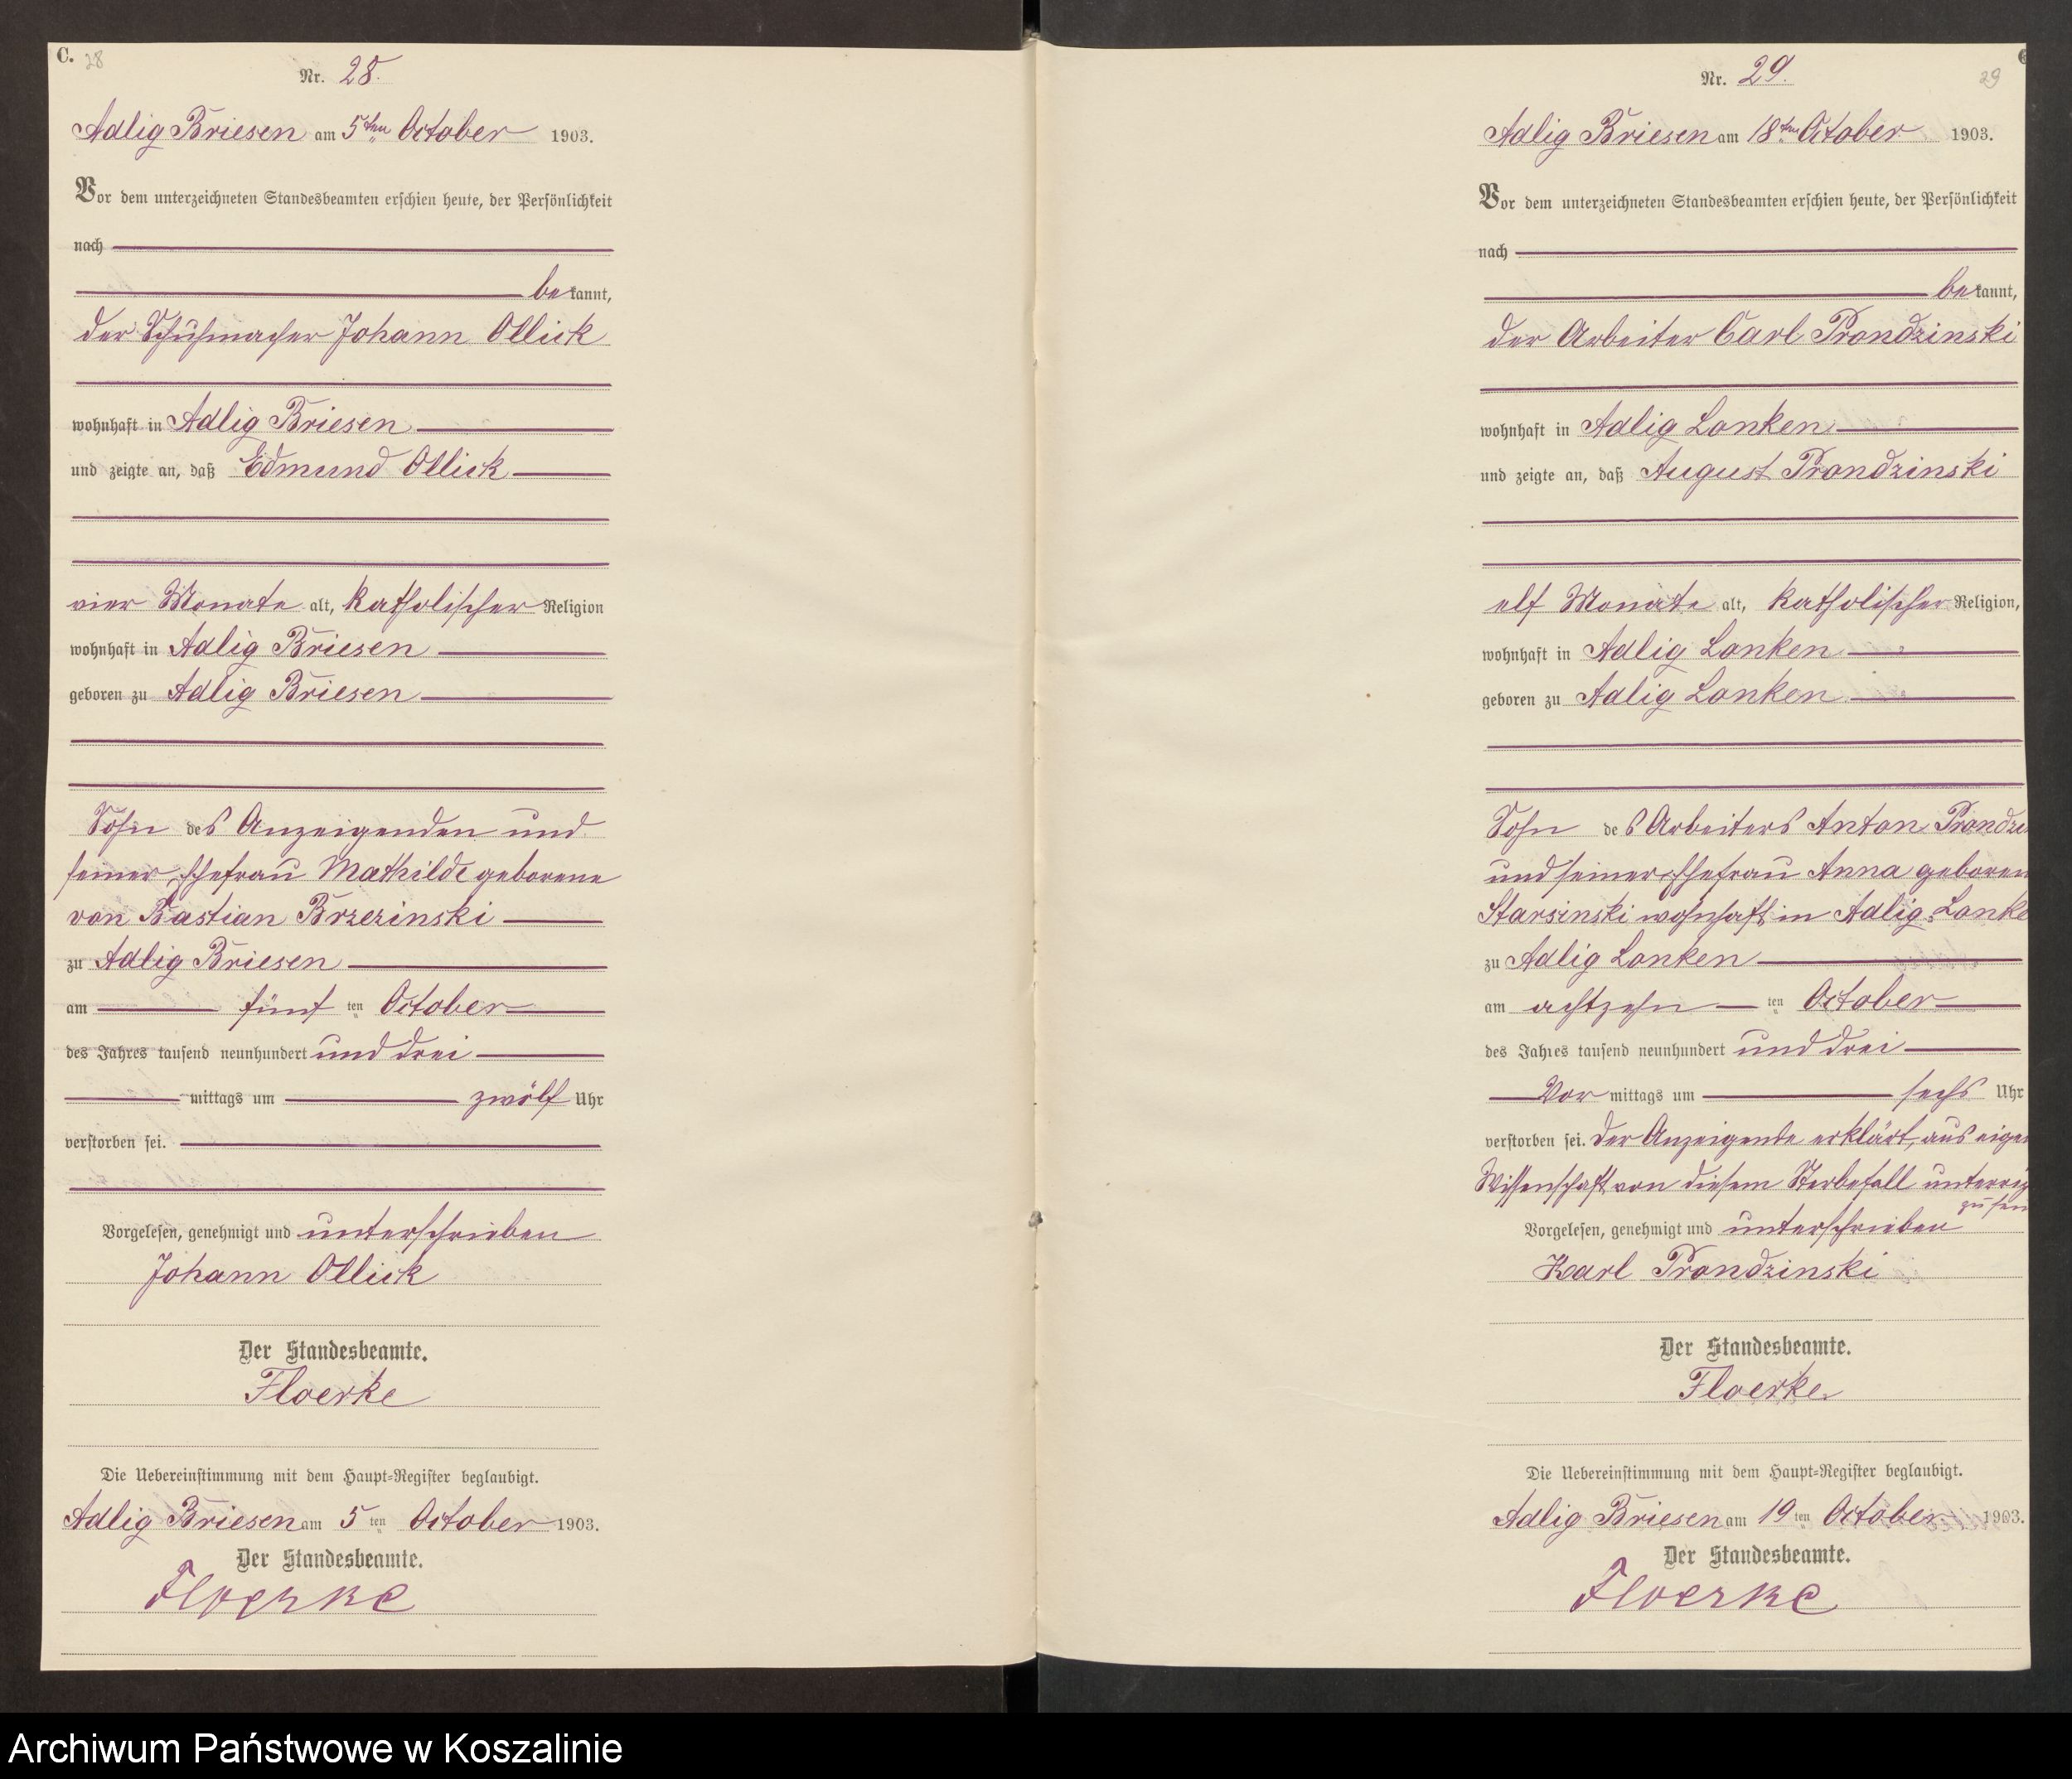 C. 28
Nr. 28.
Adlig Briesen am 5ten October 1903.
Vor dem unterzeichneten Standesbeamten erschien heute, der Persönlichkeit
nach
bekannt,
der Schuhmacher Johann Ollick
wohnhaft in Adlig Briesen
und zeigte an, daß Edmund Ollick
vier Monate alt, katholischer Religion
wohnhaft in Adlig Briesen
geboren zu Adlig Briesen
Sohn des Anzeigenden und
seiner Ehefrau Mathilde geborene
von Bastian Brzezinski
zu Adlig Briesen
am fünf ten October
des Jahres tausend neunhundert und drei
mittags um zwölf Uhr
verstorben sei.
Vorgelesen, genehmigt und unterschrieben
Johann Ollick
Der Standesbeamte.
Floerke
Die Uebereinstimmung mit dem Haupt-Register beglaubigt.
Adlig Briesen am 5 ten October 1903.
Der Standesbeamte.
Floerke
Nr. 29. 29
Adlig Briesen am 18ten October 1903.
Vor dem unterzeichneten Standesbeamten erschien heute, der Persönlichkeit
nach
bekannt,
der Arbeiter Carl Prondzinski
wohnhaft in Adlig Lonken
und zeigte an, daß August Prondzinski
elf Monate alt, katholischer Religion,
wohnhaft in Adlig Lonken
geboren zu Adlig Lonken
Sohn des Arbeiters Anton Prondzi
und seiner Ehefrau Anna geboren
Starsinski wohnhaft in Adlig Lonke
zu Adlig Lonken
am achtzehn ten October
des Jahres tausend neunhundert und drei
Vor mittags um sechs Uhr
verstorben sei. Der Anzeigende erklärt, aus eige
Wissenschaft von diesem Sterbefall unterri
zu sein
Vorgelesen, genehmigt und unterschrieben
Karl Prondzinski
Der Standesbeamte.
Floerke
Die Uebereinstimmung mit dem Haupt-Register beglaubigt.
Adlig Briesen am 19 ten October 1903.
Der Standesbeamte.
Floerke
Archiwum Państwowe w Koszalinie